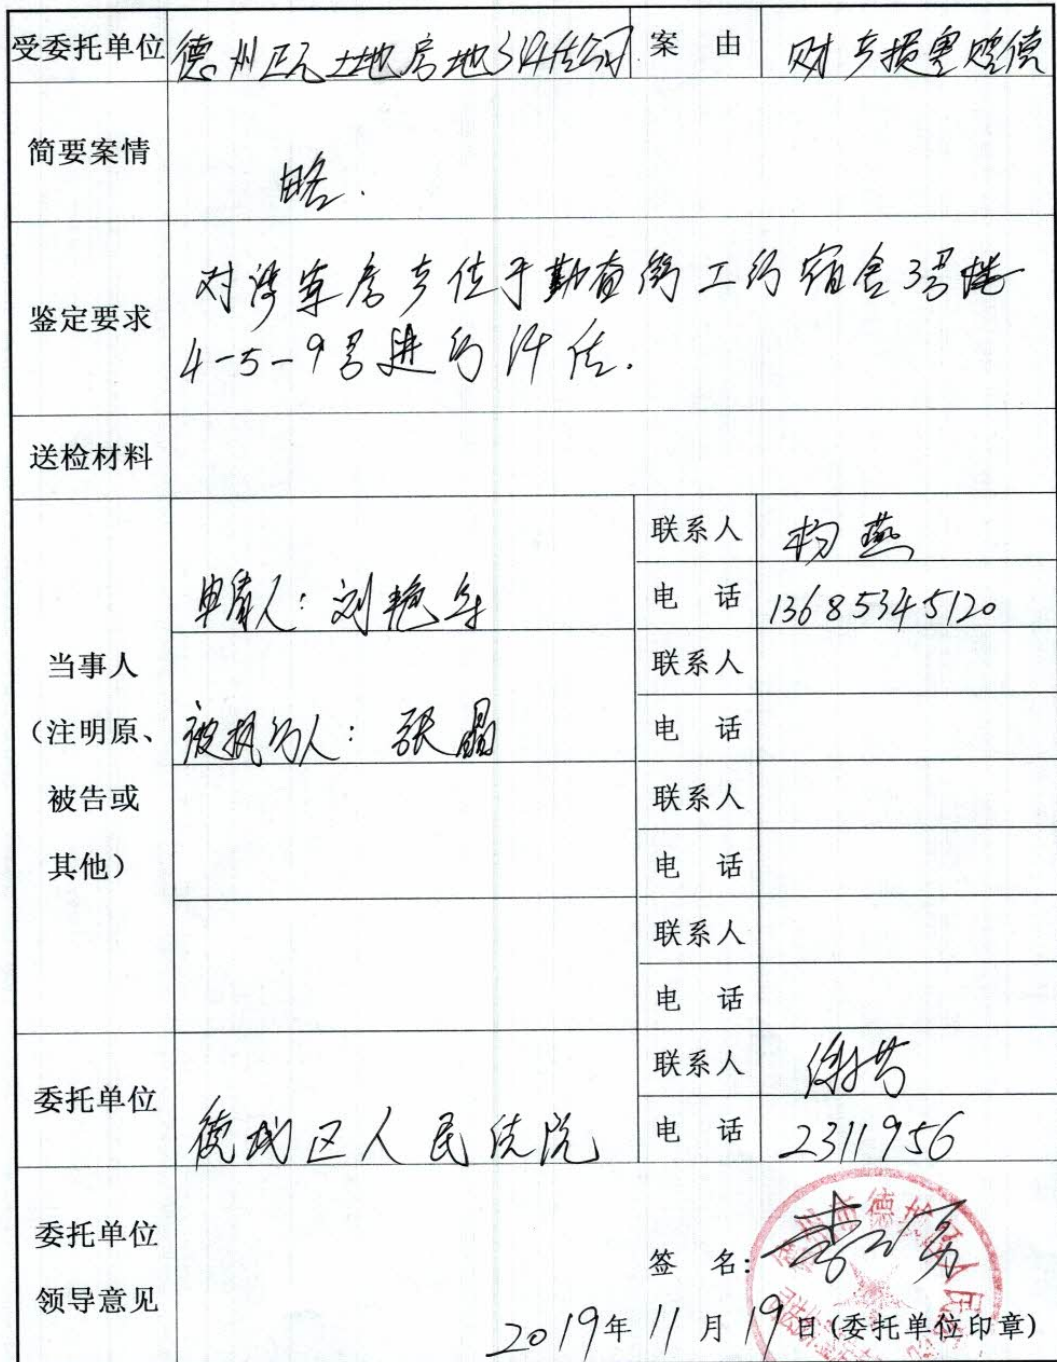 受委托单位 德州正元土地房地产评估公司 案由 财产损害赔偿
简要案情 略.
鉴定要求 对涉案房产位于勘查街工行宿舍3号楼
4-5-9号进行评估.
送检材料
联系人 杨燕
申请人: 刘艳
电话 13685345120
当事人 联系人
(注明原、 被执行人: 张晶 电话
被告或 联系人
其他) 电话
联系人
电话
委托单位 德城区人民法院 联系人
电话 2311956
委托单位
领导意见
签名:
2019年11月19日(委托单位印章)